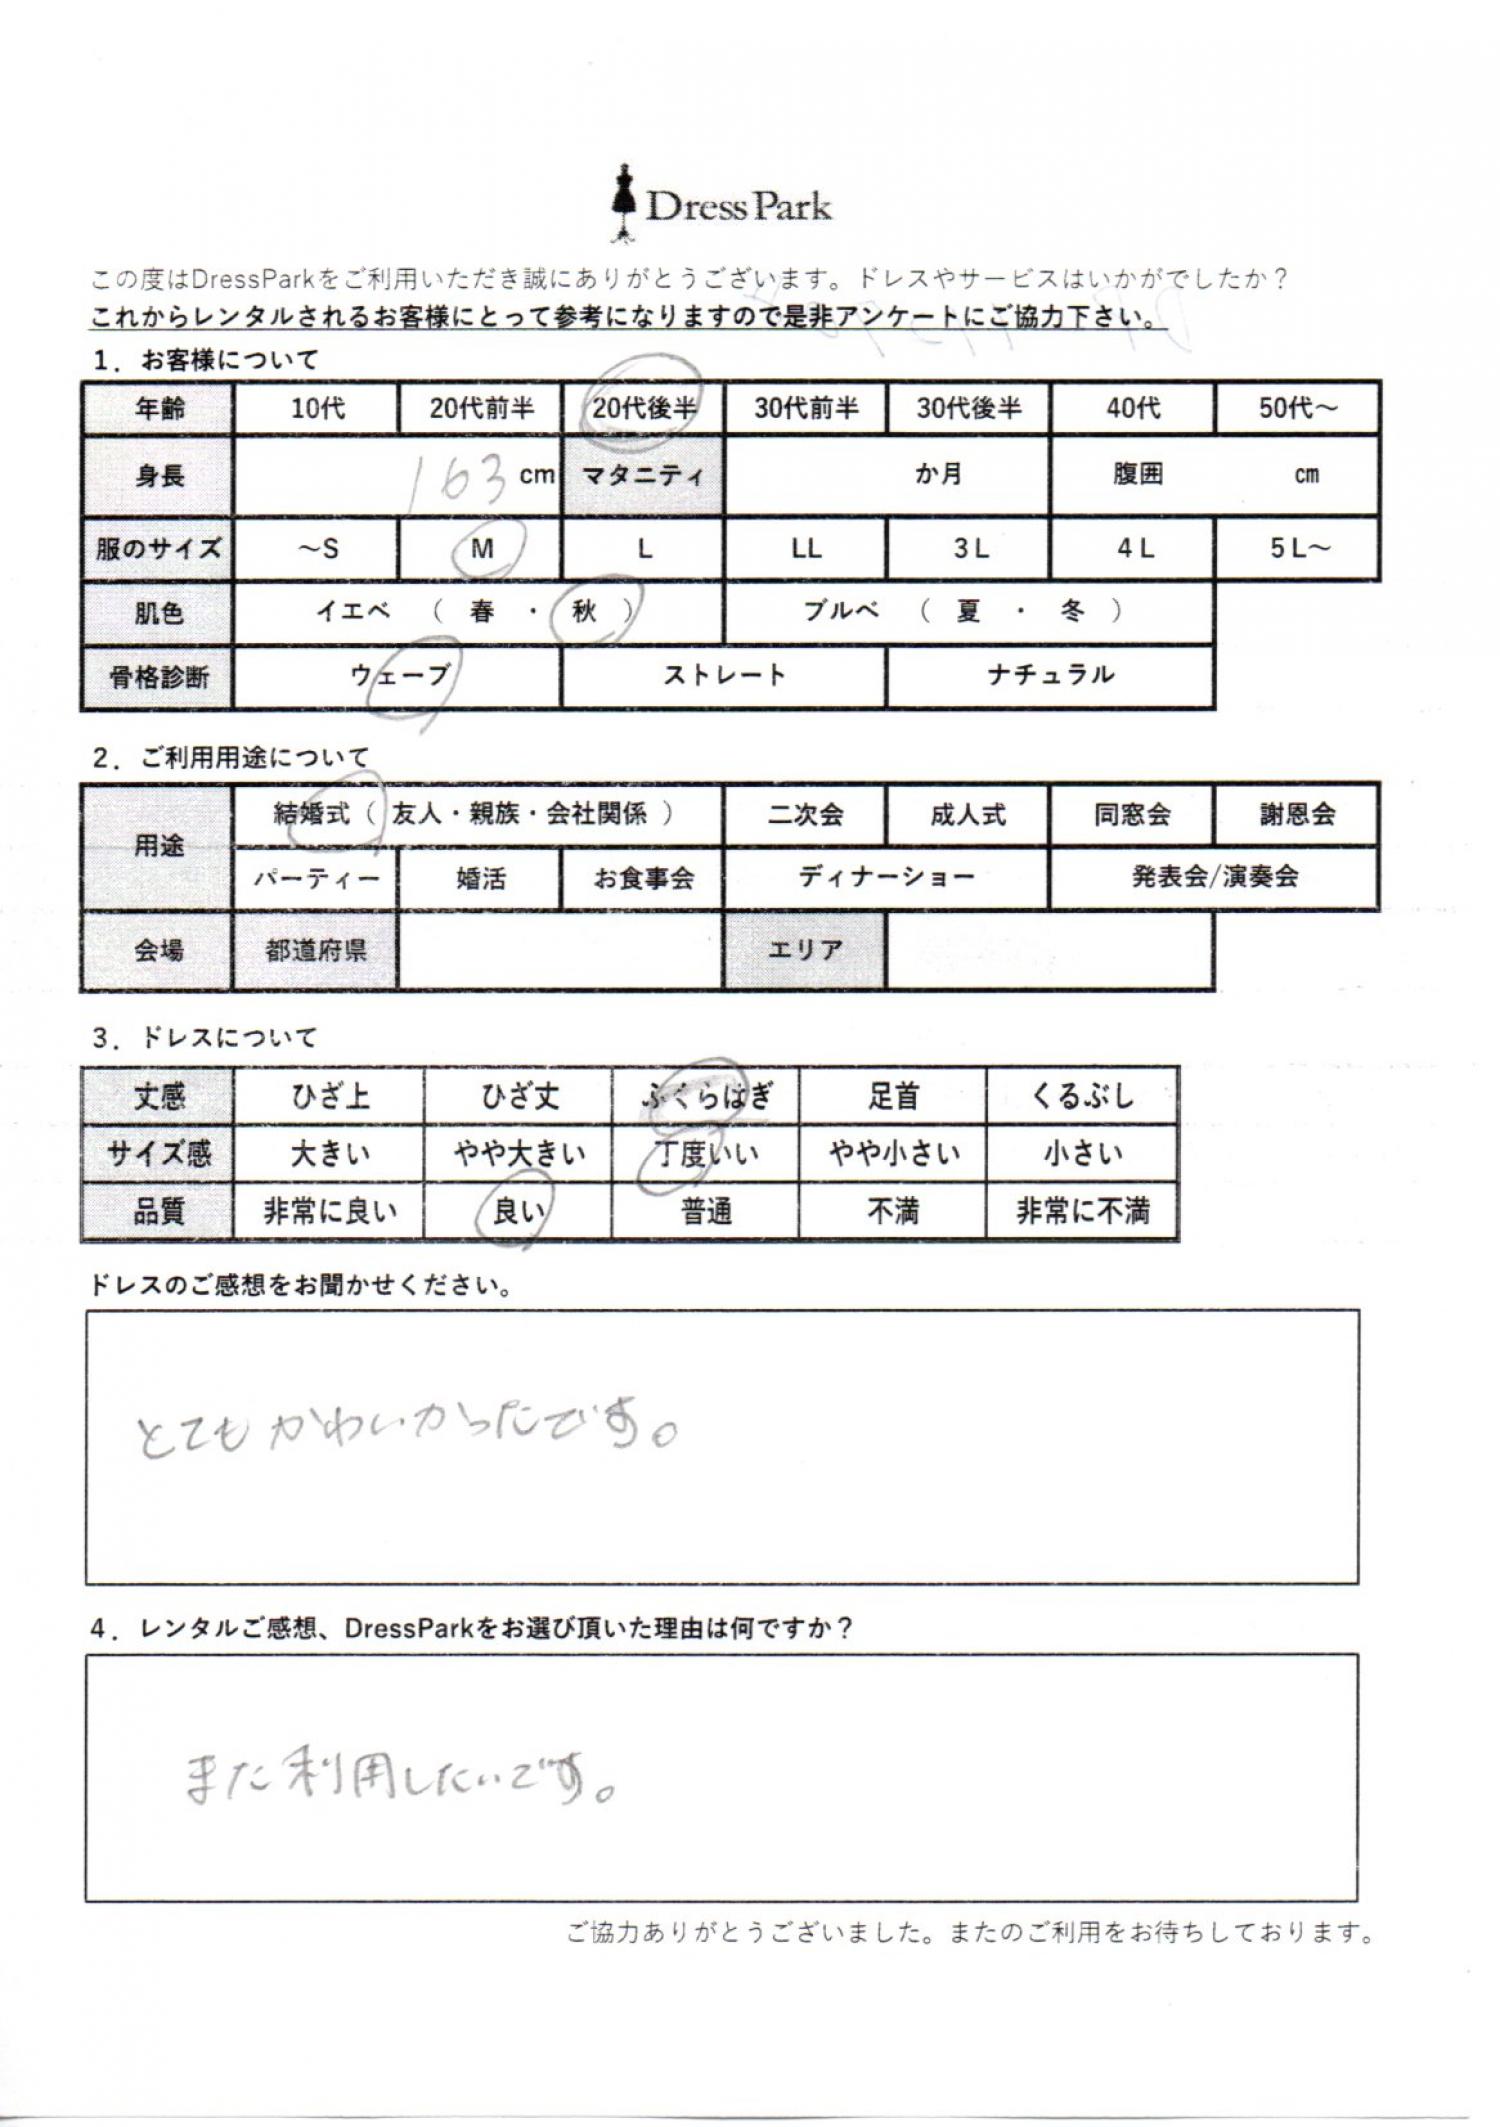 Dress Park
この度はDressParkをご利用いただき誠にありがとうございます。ドレスやサービスはいかがでしたか？
これからレンタルされるお客様にとって参考になりますので是非アンケートにご協力下さい。
1．お客様について
年齢 10代 20代前半 20代後半 30代前半 30代後半 40代 50代～
身長 163 cm マタニティ か月 腹囲 cm
服のサイズ ～S M L LL 3L 4L 5L～
肌色 イエベ （ 春 ・ 秋 ） ブルベ （ 夏 ・ 冬 ）
骨格診断 ウェーブ ストレート ナチュラル
2．ご利用用途について
用途 結婚式（ 友人・親族・会社関係 ） 二次会 成人式 同窓会 謝恩会
パーティー 婚活 お食事会 ディナーショー 発表会/演奏会
会場 都道府県 エリア
3．ドレスについて
丈感 ひざ上 ひざ丈 ふくらはぎ 足首 くるぶし
サイズ感 大きい やや大きい 丁度いい やや小さい 小さい
品質 非常に良い 良い 普通 不満 非常に不満
ドレスのご感想をお聞かせください。
とてもかわいかったです。
4．レンタルご感想、DressParkをお選び頂いた理由は何ですか？
また利用したいです。
ご協力ありがとうございました。またのご利用をお待ちしております。